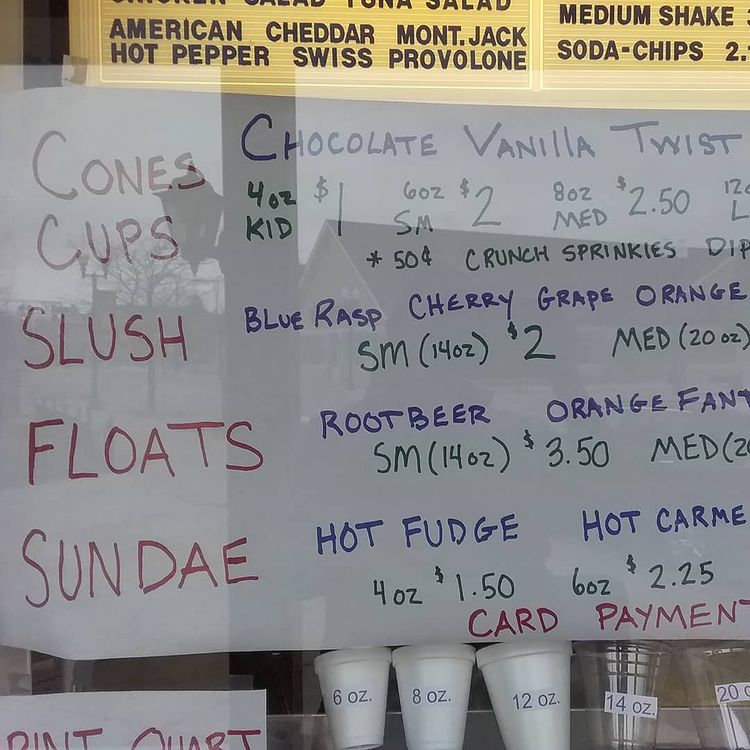 CHICKEN SALAD TUNA SALAD
AMERICAN CHEDDAR MONT.JACK
HOT PEPPER SWISS PROVOLONE
MEDIUM SHAKE
SODA-CHIPS 2.
CONES
CUPS
CHOCOLATE VANILLA TWIST
4oz KID $1 6oz SM $2 8oz MED $2.50 12o L
* 50¢ CRUNCH SPRINKIES DIP
SLUSH
BLUE RASP CHERRY GRAPE ORANGE
SM (14oz) $2 MED (20 oz)
FLOATS
ROOTBEER ORANGE FANT
SM (14oz) $3.50 MED (20
SUNDAE
HOT FUDGE HOT CARME
4oz $1.50 6oz $2.25
CARD PAYMENT
6 oz. 8 oz. 12 oz. 14 oz. 20 o
PINT QUART